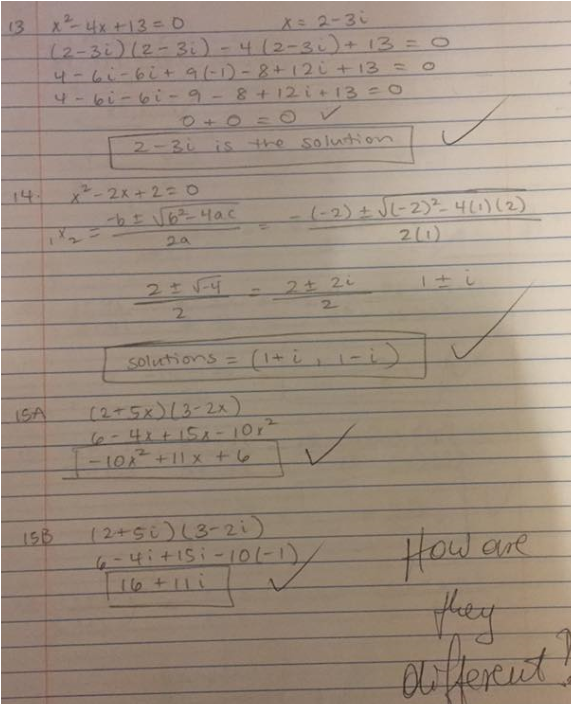 13 x² - 4x + 13 = 0 x = 2 - 3i
(2-3i)(2-3i) - 4(2-3i) + 13 = 0
4 - 6i - 6i + 9(-1) - 8 + 12i + 13 = 0
4 - 6i - 6i - 9 - 8 + 12i + 13 = 0
0 + 0 = 0 ✓
2-3i is the solution ✓
14. x² - 2x + 2 = 0
₁x₂ = (-b ± √(b² - 4ac))/(2a) = (-(-2) ± √((-2)² - 4(1)(2)))/(2(1))
(2 ± √-4)/2 = (2 ± 2i)/2 1 ± i
solutions = (1+i, 1-i) ✓
15A (2+5x)(3-2x)
6 - 4x + 15x - 10x²
-10x² + 11x + 6 ✓
15B (2+5i)(3-2i)
6 - 4i + 15i - 10(-1)
16 + 11i ✓
How are
they
different?